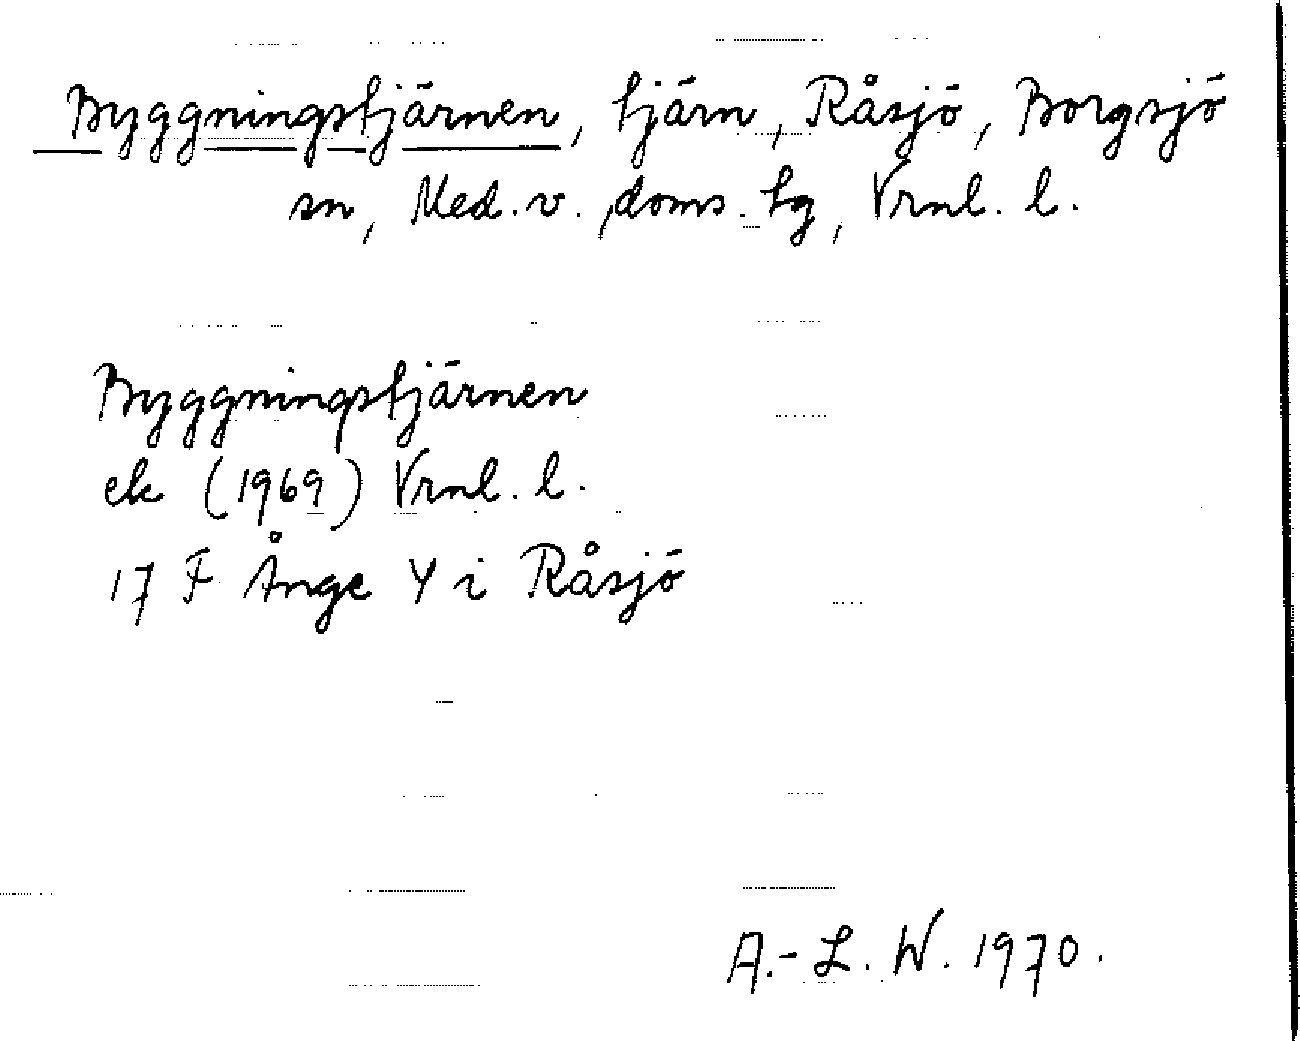 Byggningstjärnen, tjärn, Råsjö, Borgsjö
sn, Med. v., doms. tg, Vrnl. l.
Byggningstjärnen
ek (1969) Vrnl. l.
17 F Ånge Y i Råsjö
A.-L. W. 1970.